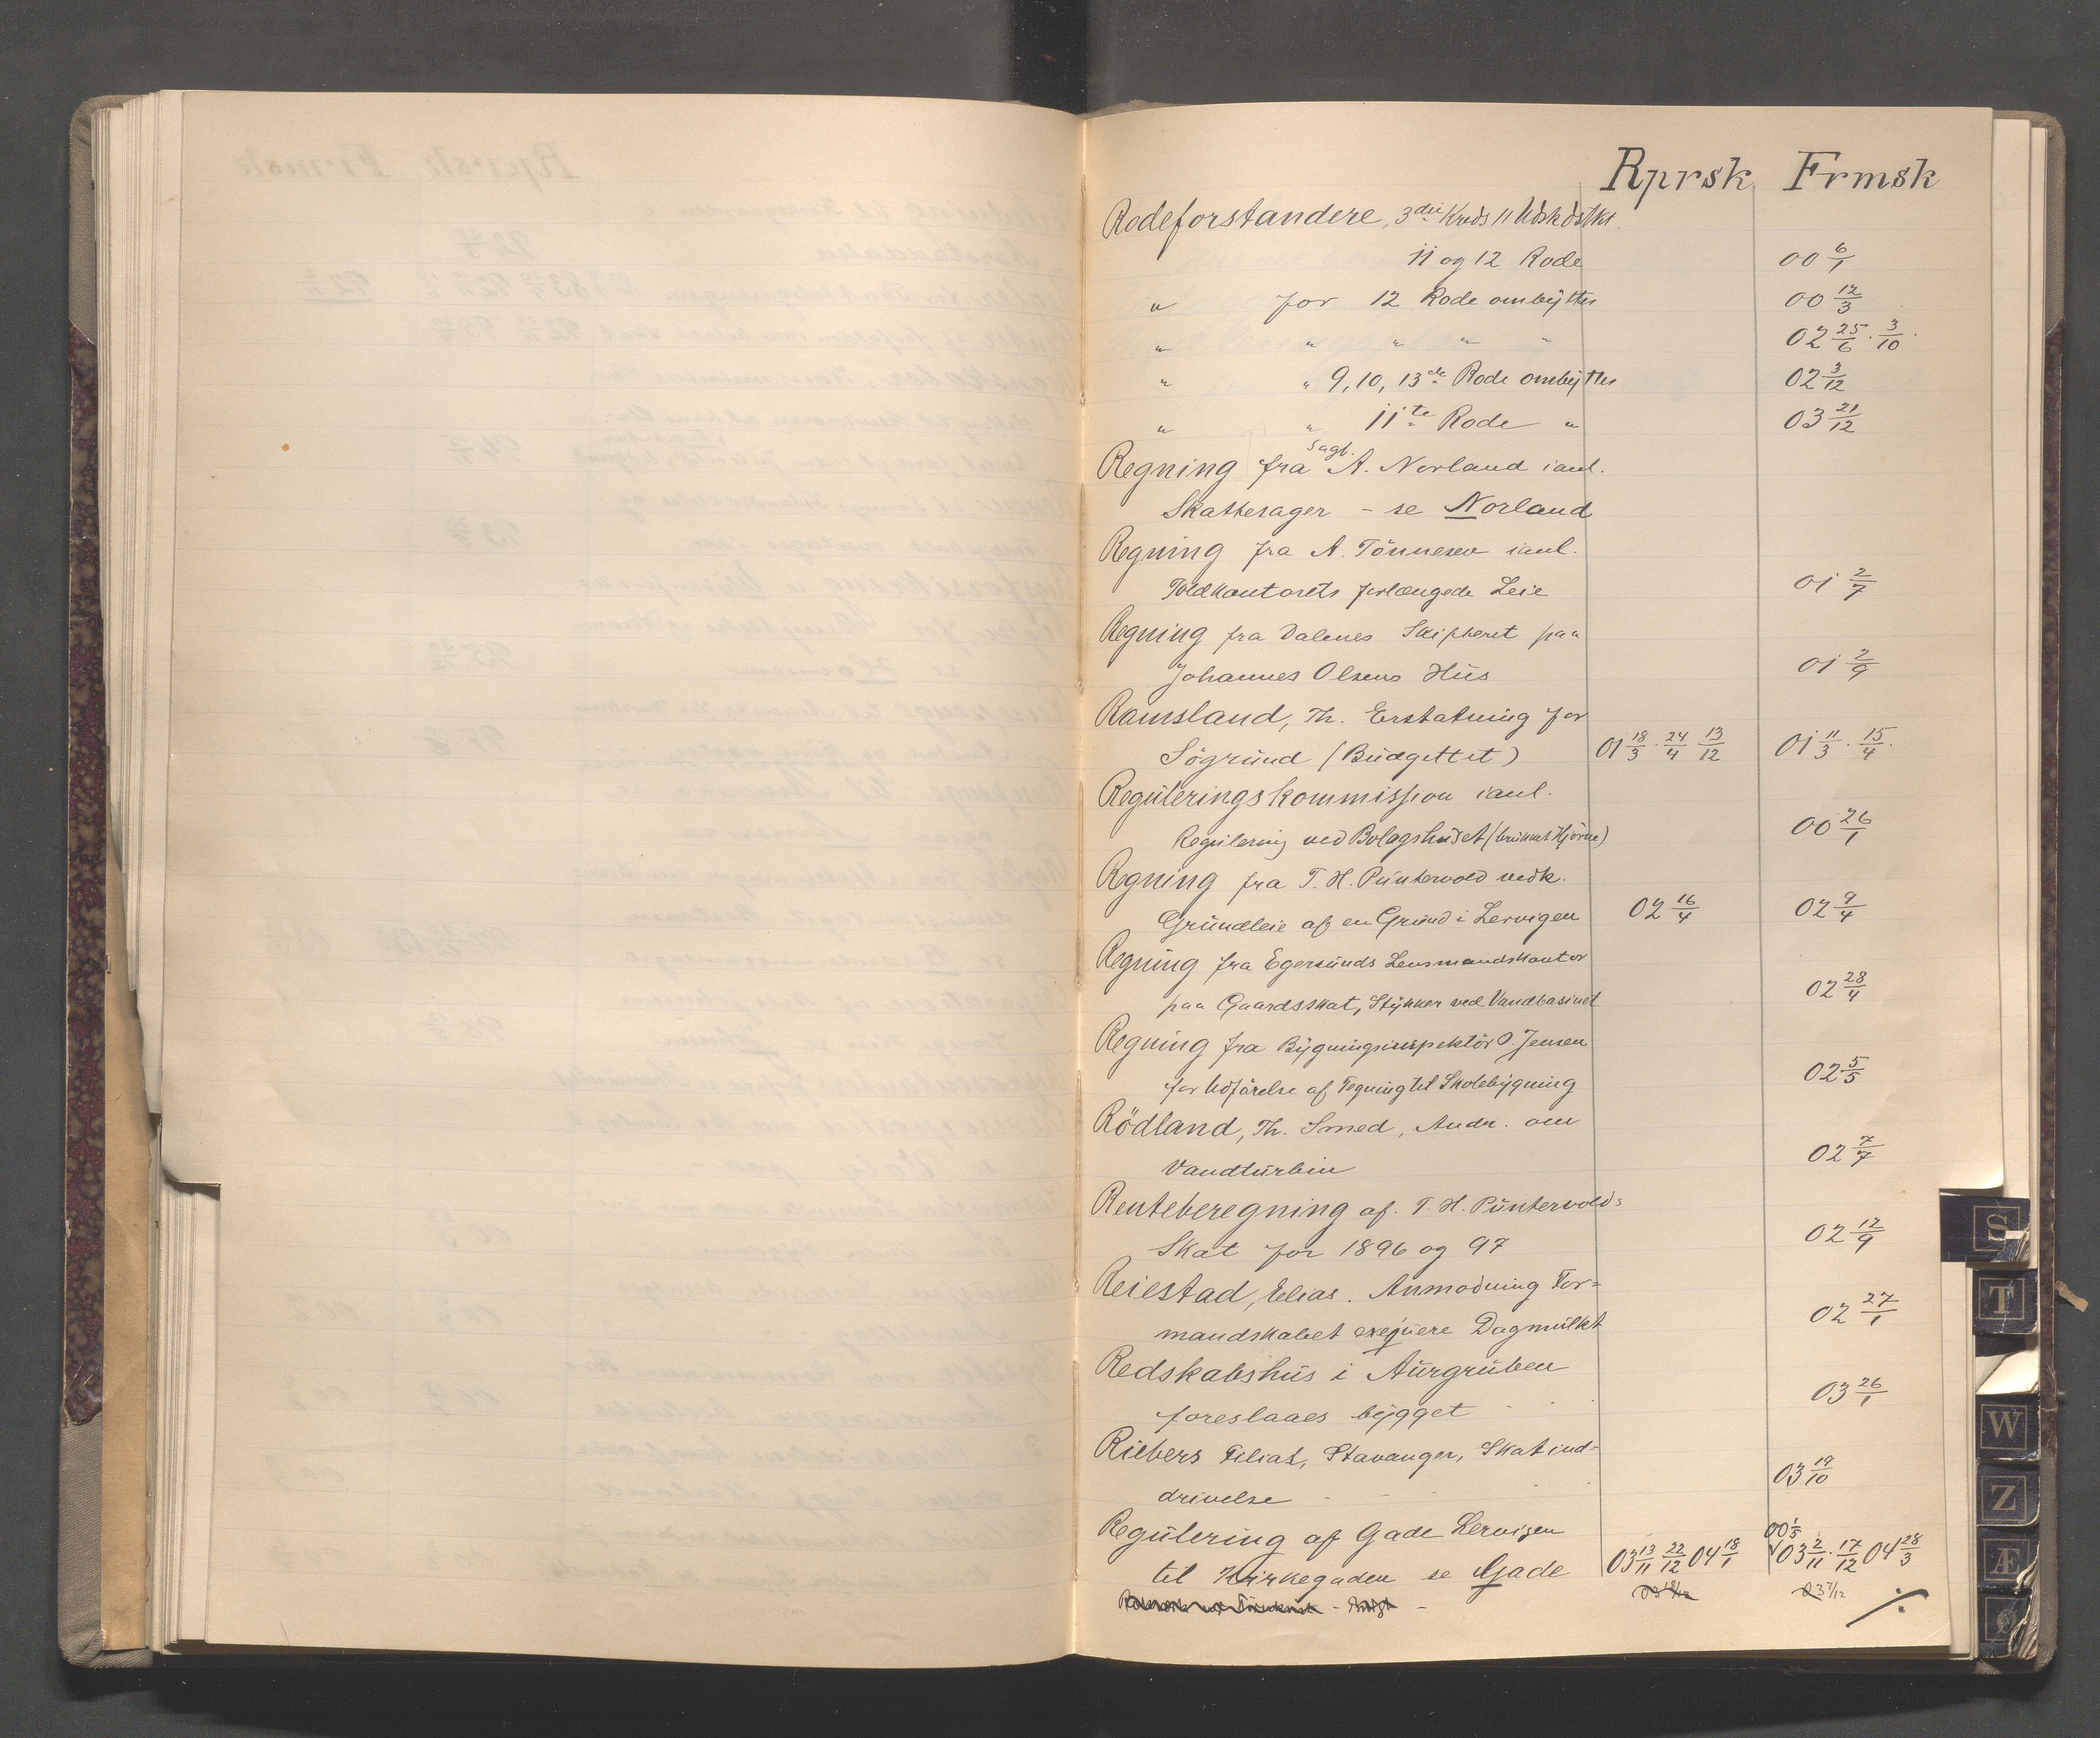 Rprsk Frmsk
Rodeforstandere, 3die Kreds
11 og 12 Rode 00 6/1
" for 12 Rode ombyttes 00 12/3
" " " " " 02 25/6 · 3/10
" " 9, 10, 13de Rode ombyttes 02 3/12
" " 11te Rode " 03 21/12
Regning fra Sagf. A. Norland i anl.
Skattesager - se Norland
Regning fra A. Tönnesen i anl.
Toldkontorets forlængede Leie 01 2/7
Regning fra Dalenes Skifteret paa
Johannes Olsens Hus 01 2/9
Ramsland, Th. Erstatning for
Sögrund (Budgettet) 01 18/3 · 24/4 13/12 01 11/3 · 15/4
Reguleringskommission i anl.
Regulering ved Bolagshuset 00 26/1
Regning fra T. H. Puntervold vedk.
Grundleie af en Grund i Lervigen 02 16/4 02 9/4
Regning fra Egersunds Lensmandskontor
paa Gaardsskat, Stykker ved Vandbasinet 02 28/4
Regning fra Bygningsinspektör O. Jensen
for Udförelse af Tegning til Skolebygning 02 5/5
Rödland, Th. Smed, Andr. om
Vandturbin 02 7/7
Renteberegning af T. H. Puntervolds
Skat for 1896 og 97 02 12/9
Reiestad, Elias. Anmodning For=
mandskabet exeqvere Dagmulkt 02 27/1
Redskabshus i Aurgruben
foreslaaes bygget 03 26/1
Riebers Filial, Stavanger, Skatind=
drivelse 03 19/10
Regulering af Gade Lervigen 00 1/5
til Kirkegaden se Gade 03 13/11 22/12 04 18/1 03 2/11 · 17/12 04 28/3
S
T
W
Z
Æ
Ø